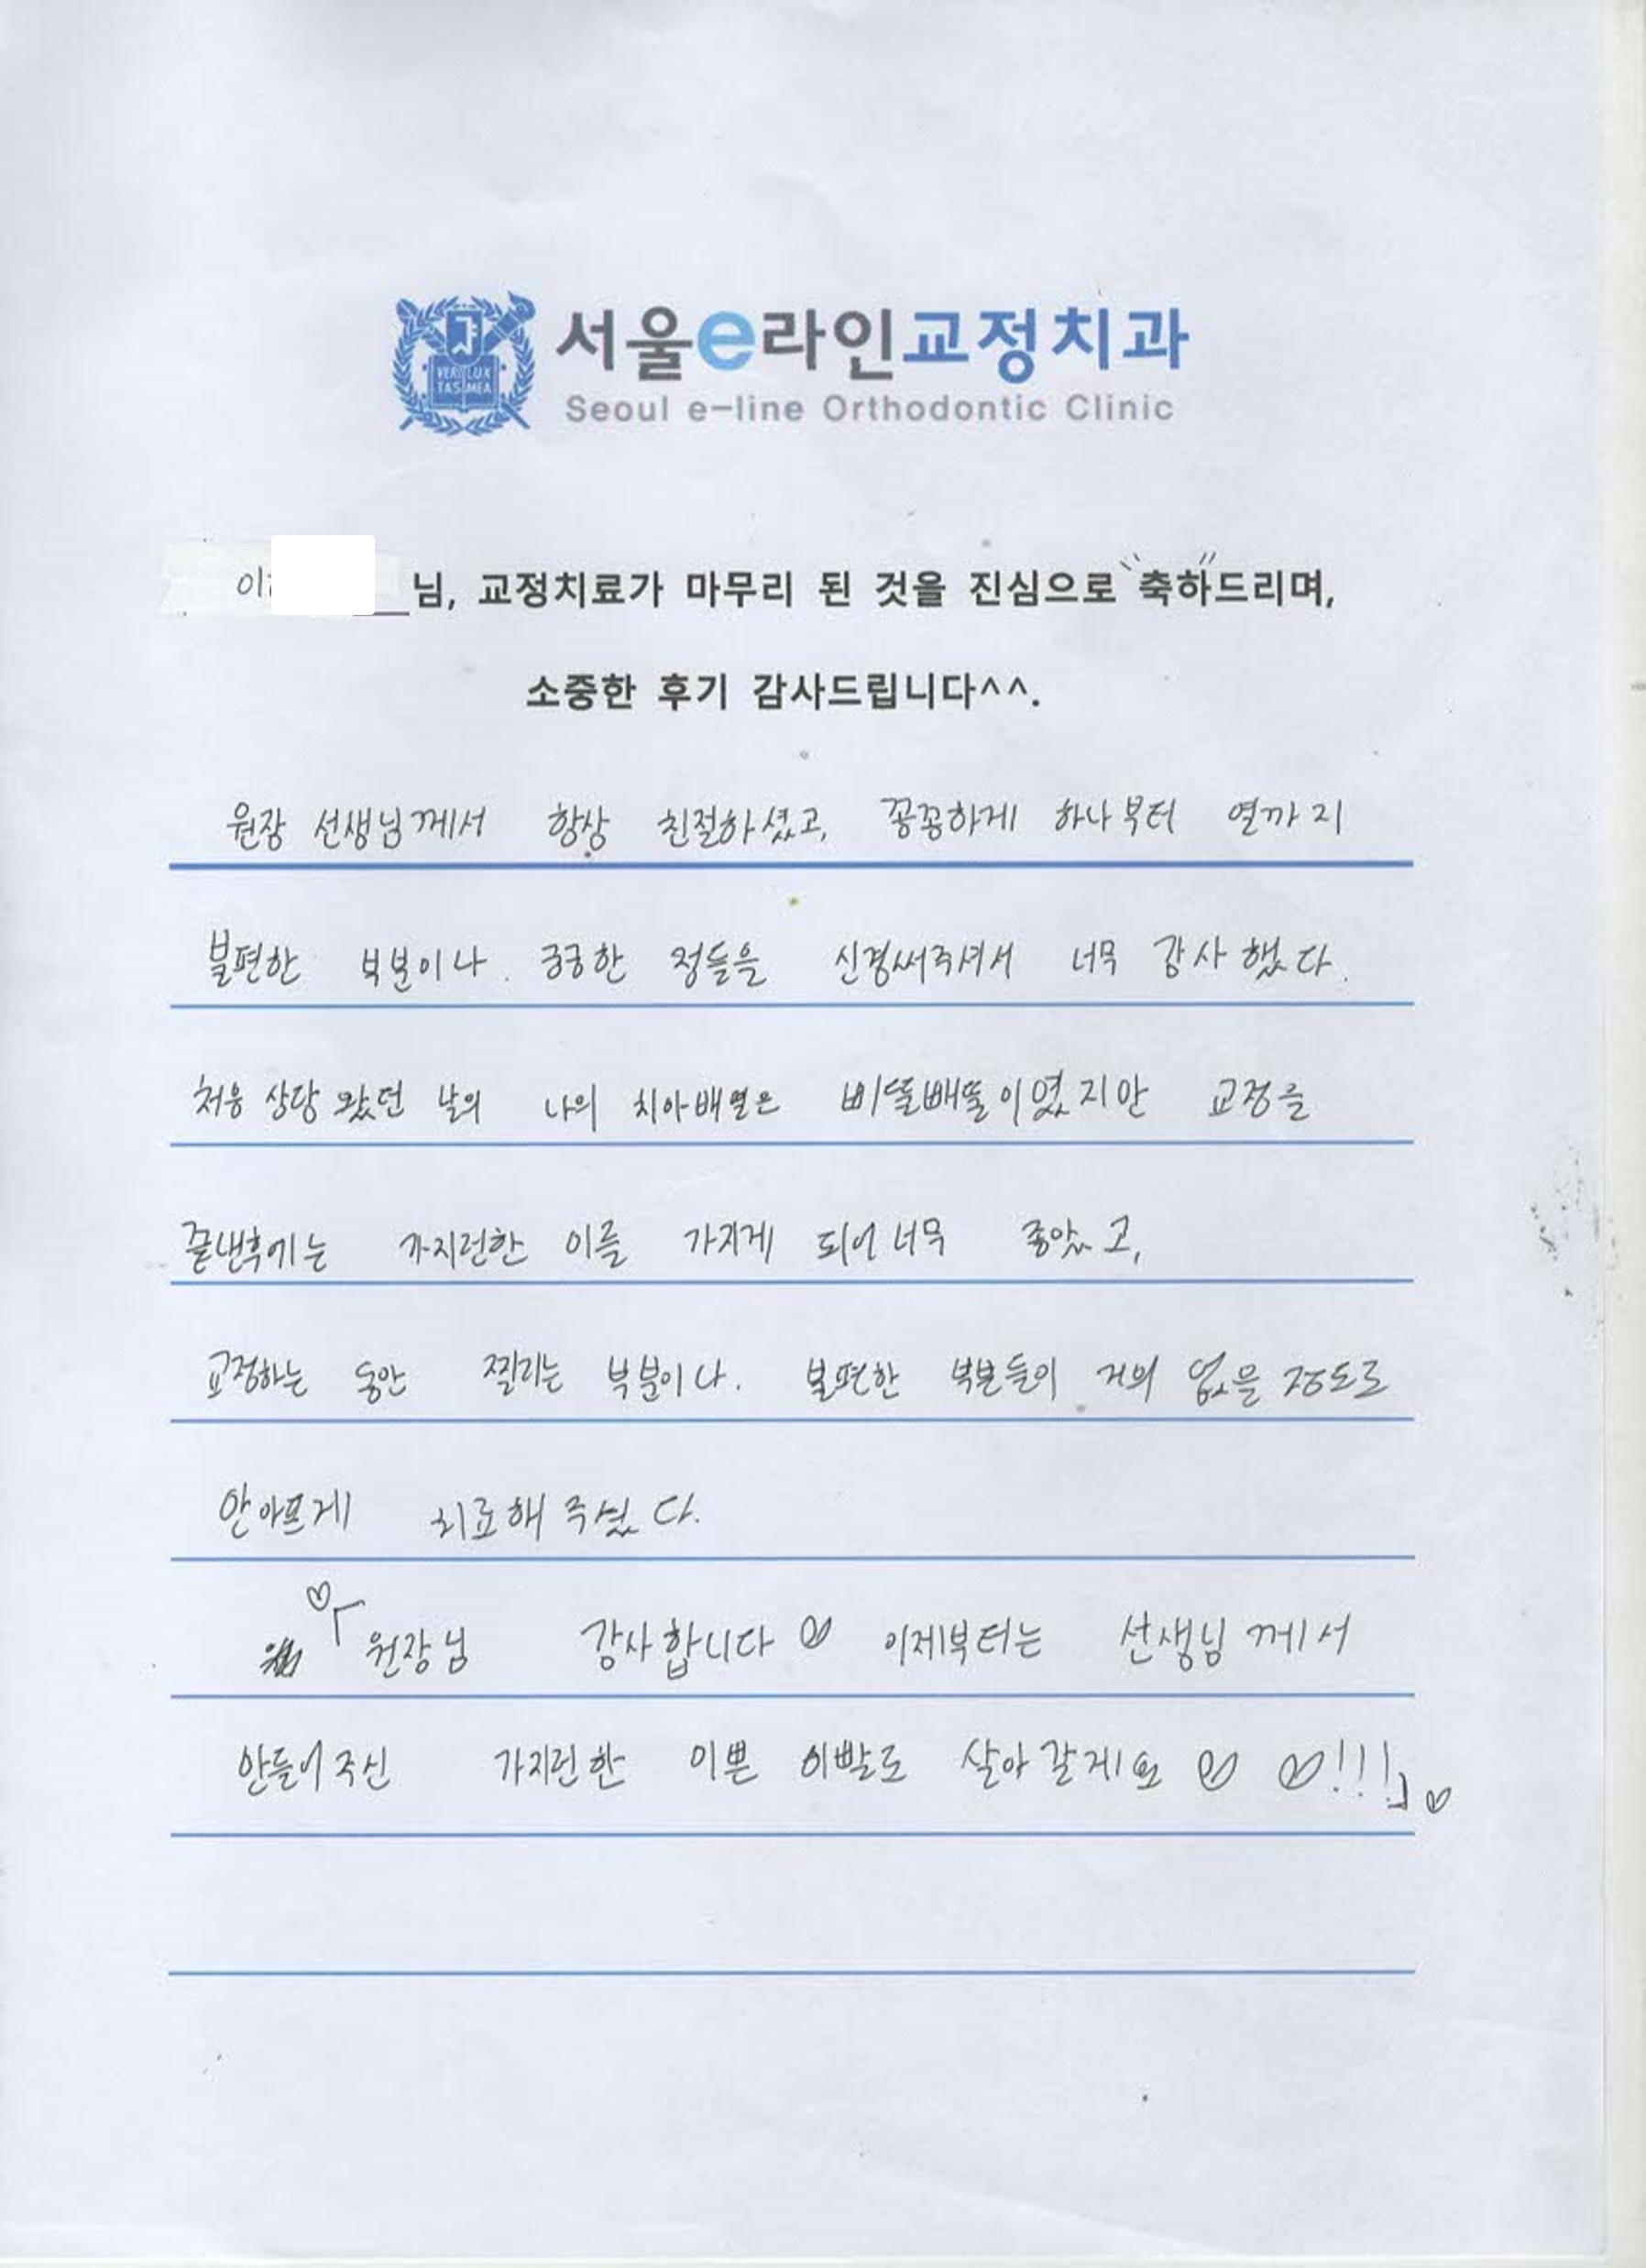 VERI LUX
TAS MEA
서울e라인교정치과
Seoul e-line Orthodontic Clinic
이 님, 교정치료가 마무리 된 것을 진심으로 "축하"드리며,
소중한 후기 감사드립니다^^.
원장 선생님께서 항상 친절하셨고, 꽁꽁하게 하나부터 열까지
불편한 부분이나 궁궁한 점들을 신경써주셔서 너무 감사했다.
처음 상담 왔던 날의 나의 치아배열은 삐뚤빼뚤이였지만 교정을
끝낸후에는 가지런한 이를 가지게 되어 너무 좋았고,
교정하는 동안 찔리는 부분이나. 불편한 부분들이 거의 없을 정도로
안아프게 치료해주셨다.
♡「원장님 감사합니다♡ 이제부터는 선생님께서
만들어주신 가지런한 이쁜 이빨로 살아갈게요 ♡ ♡!!!」♡